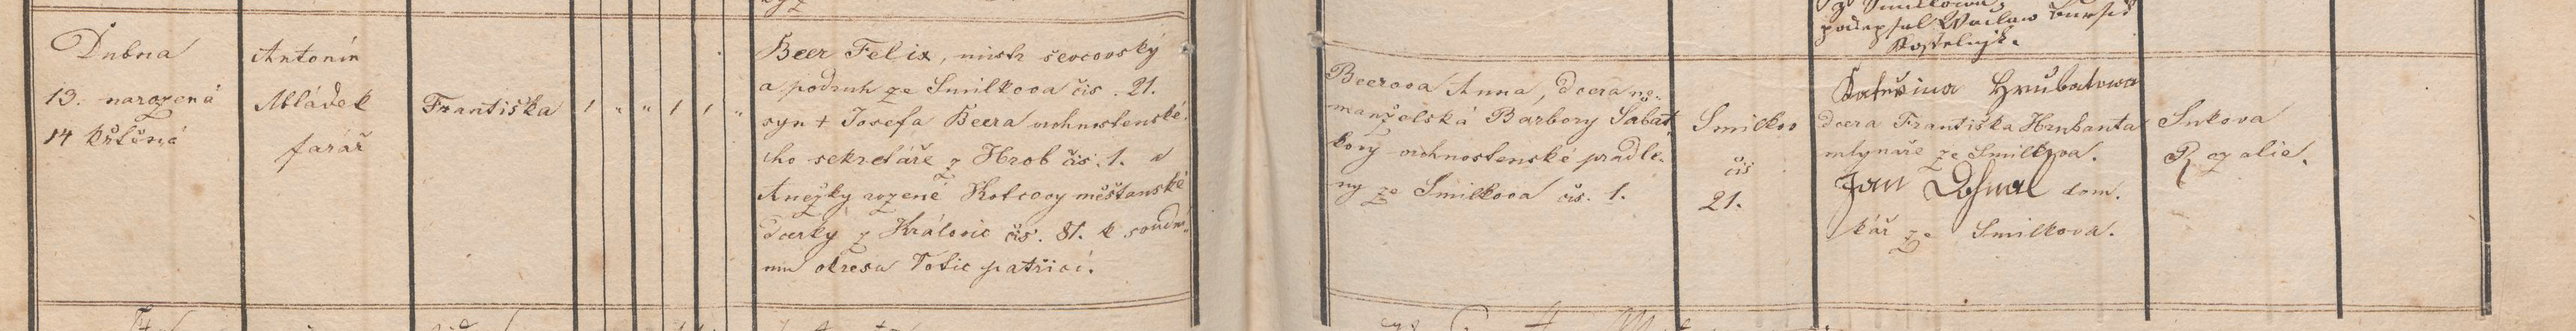 z Smilkowa,
podepsal Waclaw
Kostelnjk.
Dubna
13. narozená
14 křtěná
Antonín
Mládek
farář
Františka
1 " " 1 1 "
Beer Felix, mistr ševcovský
a podruh ze Smilkova čis. 21.
syn + Josefa Beera vrchnostenské-
ho sekretáře z Hrob čis. 1. a
Anežky rozené Kotrovy měštanské
dcerky z Královic čis. 81. k soudní-
mu okresu patřící.
Beerova Anna, dcera ne-
manželská Barbory Sabat-
kovy vrchnostenské pradle-
ny ze Smilkova čis. 1.
Smilkov
čis
21.
Kateřina Hrubatowa
dcera Františka Hrubanta
mlynáře ze Smilkova.
Jan dom-
kář ze Smilkova.
Sukova
Rozalie.